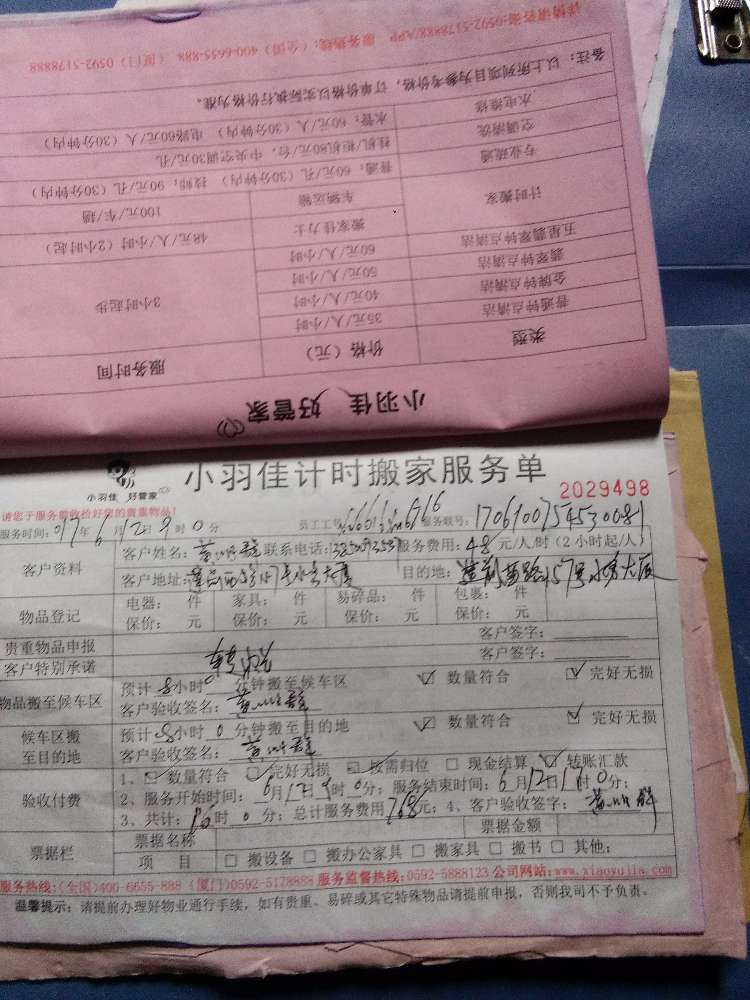 小羽佳 好管家
类型 价格（元） 服务时间
普通钟点清洁 35元/人/小时 3小时起步
金牌钟点清洁 40元/人/小时
翡翠钟点清洁 50元/人/小时
五星翡翠钟点清洁 60元/人/小时
计时搬家 搬家佳力士 48元/人/小时（2小时起）
车辆运输 100元/车/趟
专业疏通 普通：60元/孔（30分钟内） 技师：90元/孔（30分钟内）
空调清洗 挂机/柜机80元/台，中央空调30元/孔
水电维修 水管：60元/人（30分钟内） 电路60元/人（30分钟内）
备注：以上所列项目为参考价格，订单价格以实际执行价格为准。
详情请咨询:0592-5178888/APP 服务热线：(全国) 400-6655-888 (厦门) 0592-5178888
小羽佳 好管家
小羽佳计时搬家服务单
2029498
请您于服务前收拾好您的贵重物品！
服务时间：017年6月12日9时0分 员工工号 服务联号：
客户资料 客户姓名： 联系电话： 服务费用：48元/人/时（2小时起/人）
客户地址： 目的地：
物品登记 电器： 件 家具： 件 易碎品： 件 包裹： 件
保价： 元 保价： 元 保价： 元 保价： 元
贵重物品申报 客户签字：
客户特别承诺 客户签字：
物品搬至候车区 预计8小时0分钟搬至候车区 数量符合 完好无损
客户验收签名：
候车区搬至目的地 预计8小时0分钟搬至目的地 数量符合 完好无损
客户验收签名：
验收付费 1、数量符合 完好无损 按需归位 现金结算 转账汇款
2、服务开始时间：6月12日9时0分；服务结束时间：6月12日18时0分；
3、共计：16时0分；总计服务费用768元；4、客户验收签字：
票据栏 票据名称 票据金额
项 目 搬设备 搬办公家具 搬家具 搬书 其他：
服务热线：(全国)400-6655-888 (厦门)0592-5178888 服务监督热线:0592-5888123 公司网站:www.xiaoyujia.com
温馨提示：请提前办理好物业通行手续，如有贵重、易碎或其它特殊物品请提前申报，否则我司不予负责。